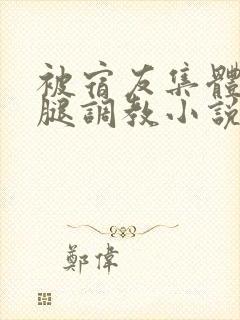 被宿友集體
腿調教小說
鄭偉